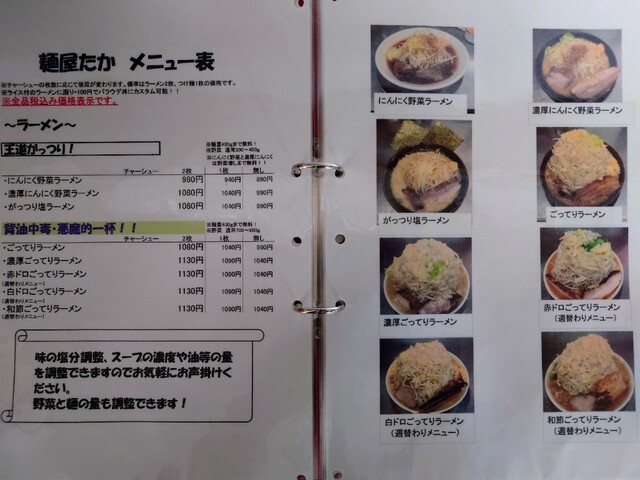 麺屋たか メニュー表
※チャーシューの枚数に応じて値段が変わります。標準はラーメン2枚、つけ麺1枚の価格です。
※ライス付のラーメンに限り+100円でバラウデ丼にカスタム可能！！
※全品税込み価格表示です。
～ラーメン～
王道がっつり！
※麺量400gまで無料！
※野菜 通常300～460g
※にんにく野菜と濃厚にんにく
は野菜増しまで無料！！
チャーシュー 2枚 1枚 無し
・にんにく野菜ラーメン 980円 940円 890円
・濃厚にんにく野菜ラーメン 1080円 1040円 990円
・がっつり塩ラーメン 1080円 1040円 990円
背油中毒・悪魔的一杯！！
※麺量400gまで無料！
チャーシュー 2枚 1枚 無し
・ごってりラーメン 1080円 1040円 990円
・濃厚ごってりラーメン 1130円 1090円 1040円
・赤ドロごってりラーメン 1130円 1090円 1040円
(週替わりメニュー)
・白ドロごってりラーメン 1130円 1090円 1040円
(週替わりメニュー)
・和節ごってりラーメン 1130円 1090円 1040円
(週替わりメニュー)
味の塩分調整、スープの濃度や油等の量
を調整できますのでお気軽にお声掛けく
ださい。
野菜と麺の量も調整できます！
にんにく野菜ラーメン
濃厚にんにく野菜ラーメン
がっつり塩ラーメン
ごってりラーメン
濃厚ごってりラーメン
赤ドロごってりラーメン
(週替わりメニュー)
白ドロごってりラーメン
(週替わりメニュー)
和節ごってりラーメン
(週替わりメニュー)